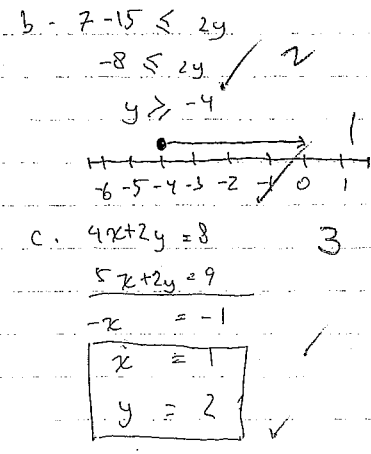 b - 7 - 15 ⩽ 2y
-8 ⩽ 2y ✓ 2
y ⩾ -4
1
-6 -5 -4 -3 -2 -1 0 1
c. 4x+2y = 8 3
5x+2y = 9
-x = -1
x = 1
y = 2 ✓